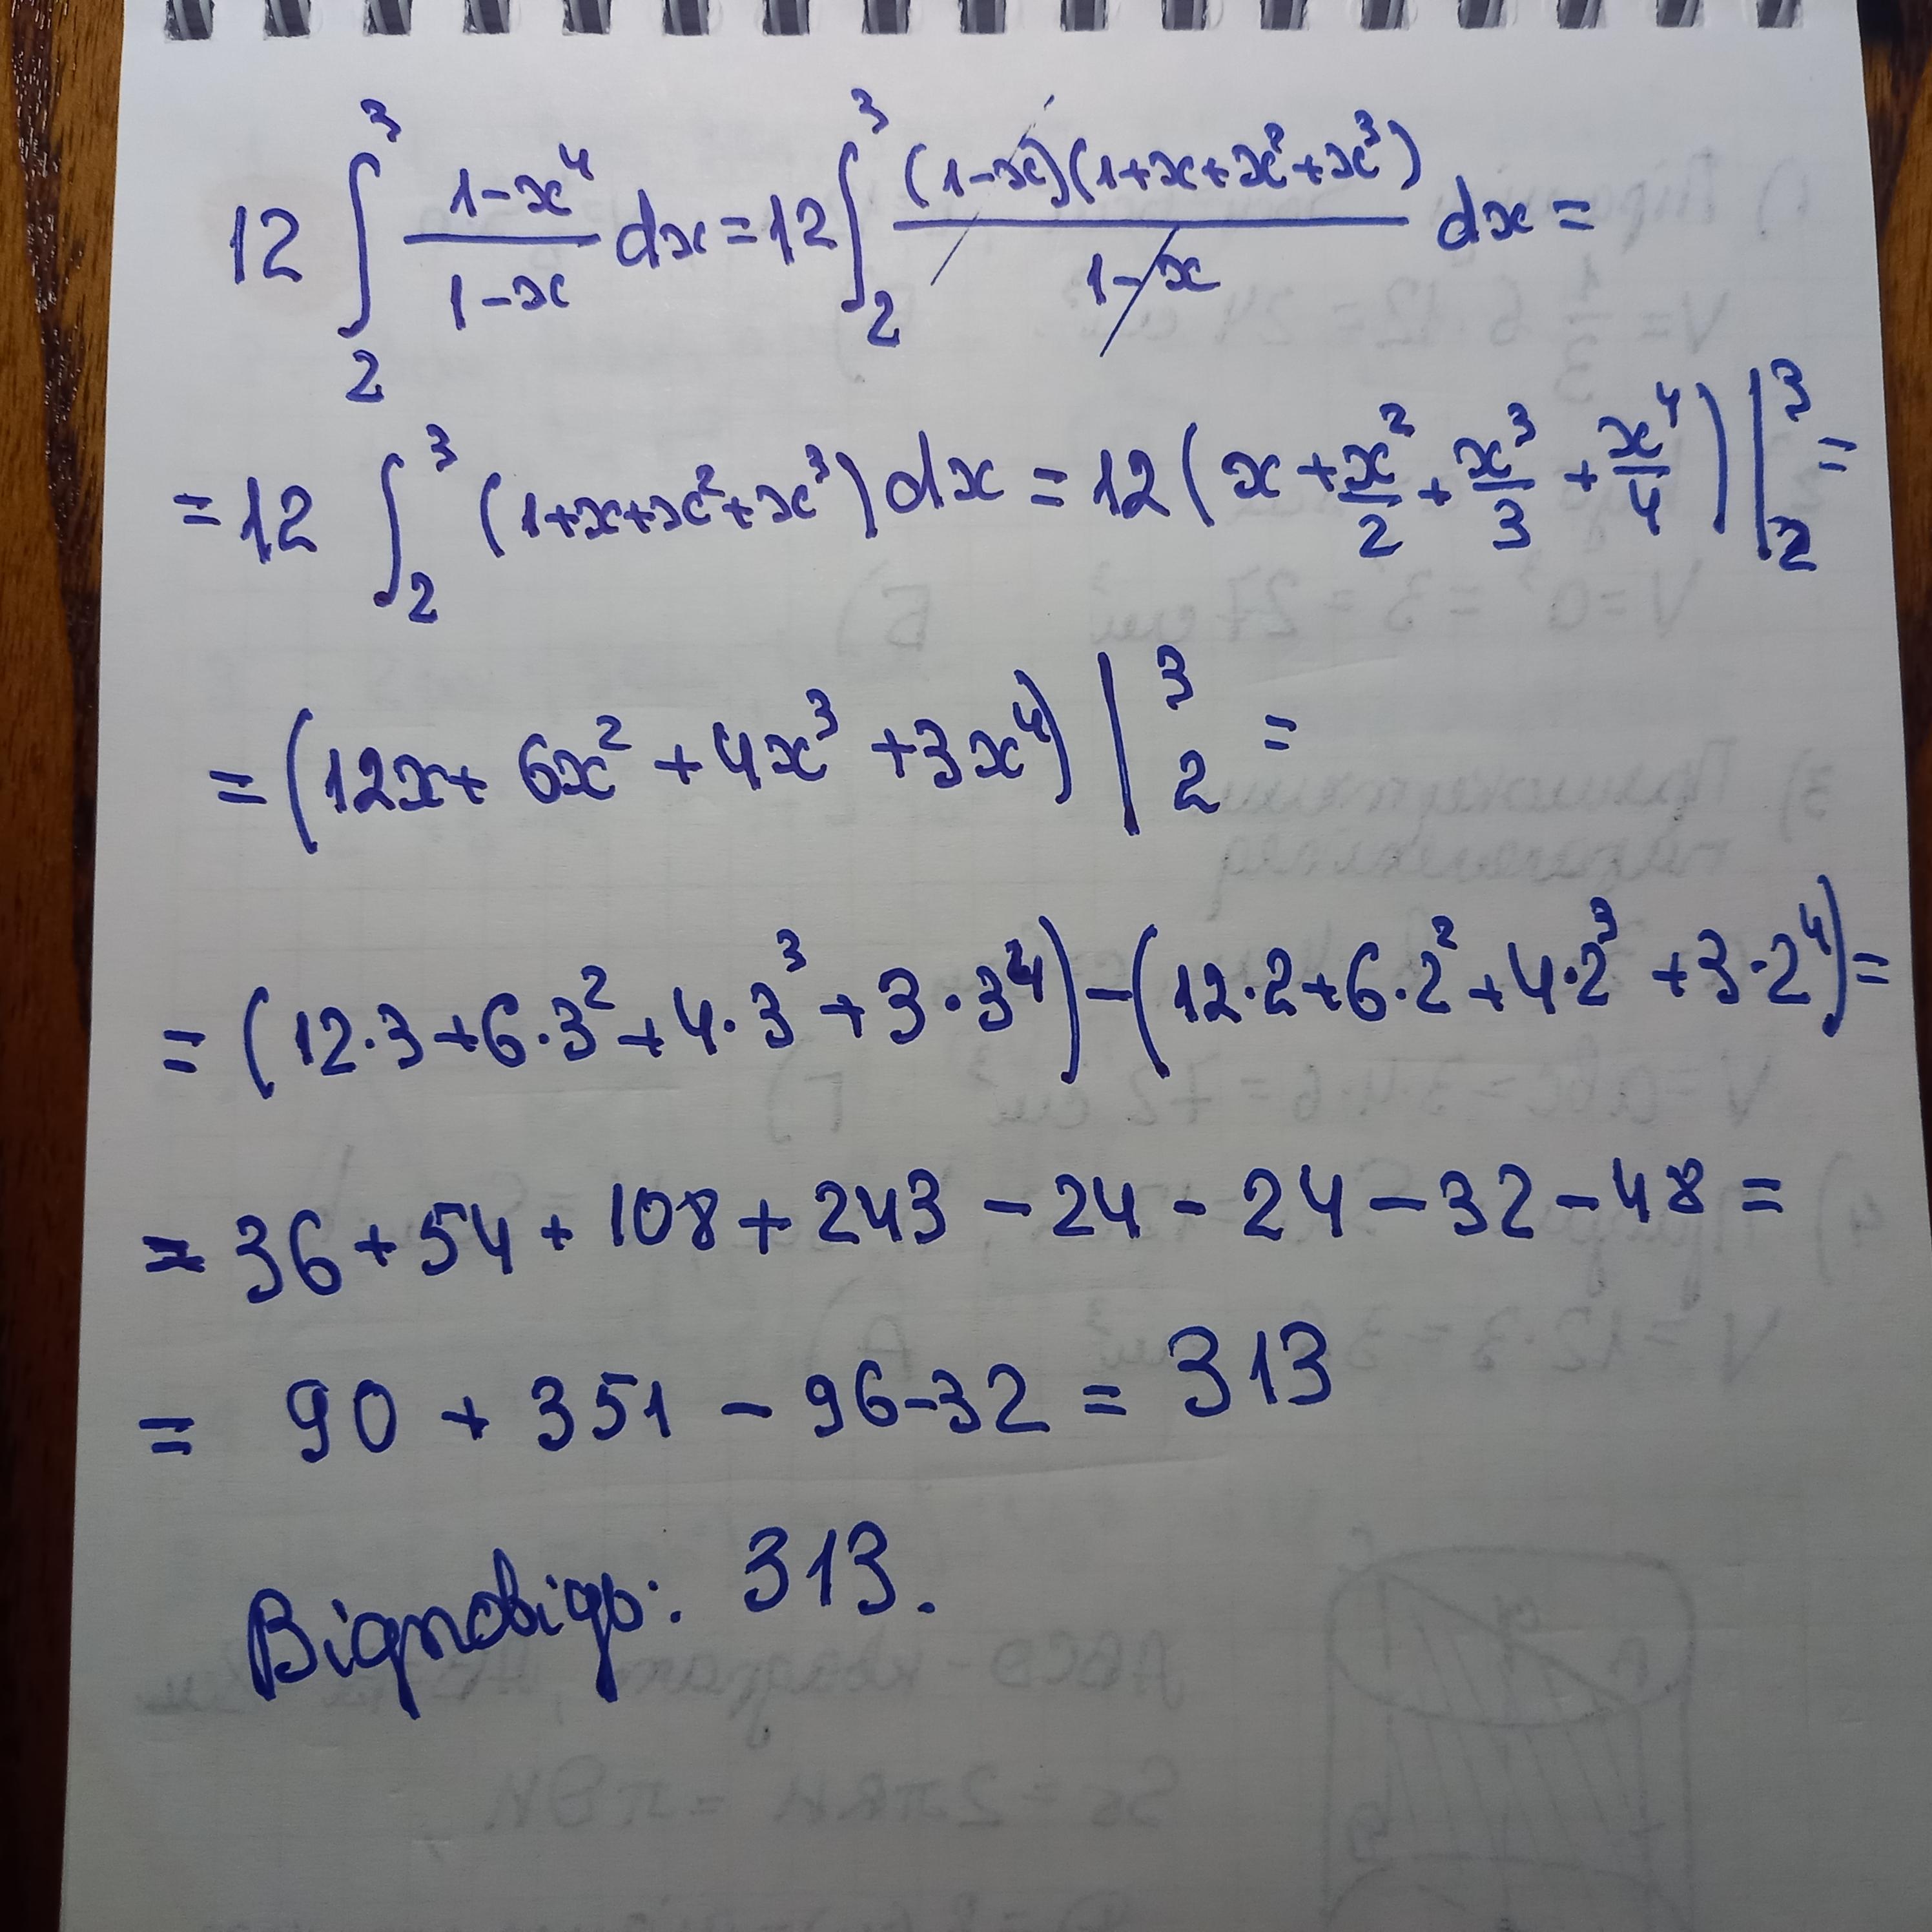 12 ∫₂³ (1-x⁴)/(1-x) dx = 12 ∫₂³ (1-x)(1+x+x²+x³)/(1-x) dx =
= 12 ∫₂³ (1+x+x²+x³) dx = 12 (x + x²/2 + x³/3 + x⁴/4) |₂³ =
= (12x + 6x² + 4x³ + 3x⁴) |₂³ =
= (12·3+6·3²+4·3³+3·3⁴) - (12·2+6·2²+4·2³+3·2⁴) =
= 36 + 54 + 108 + 243 - 24 - 24 - 32 - 48 =
= 90 + 351 - 96 - 32 = 313
Відповідь: 313.